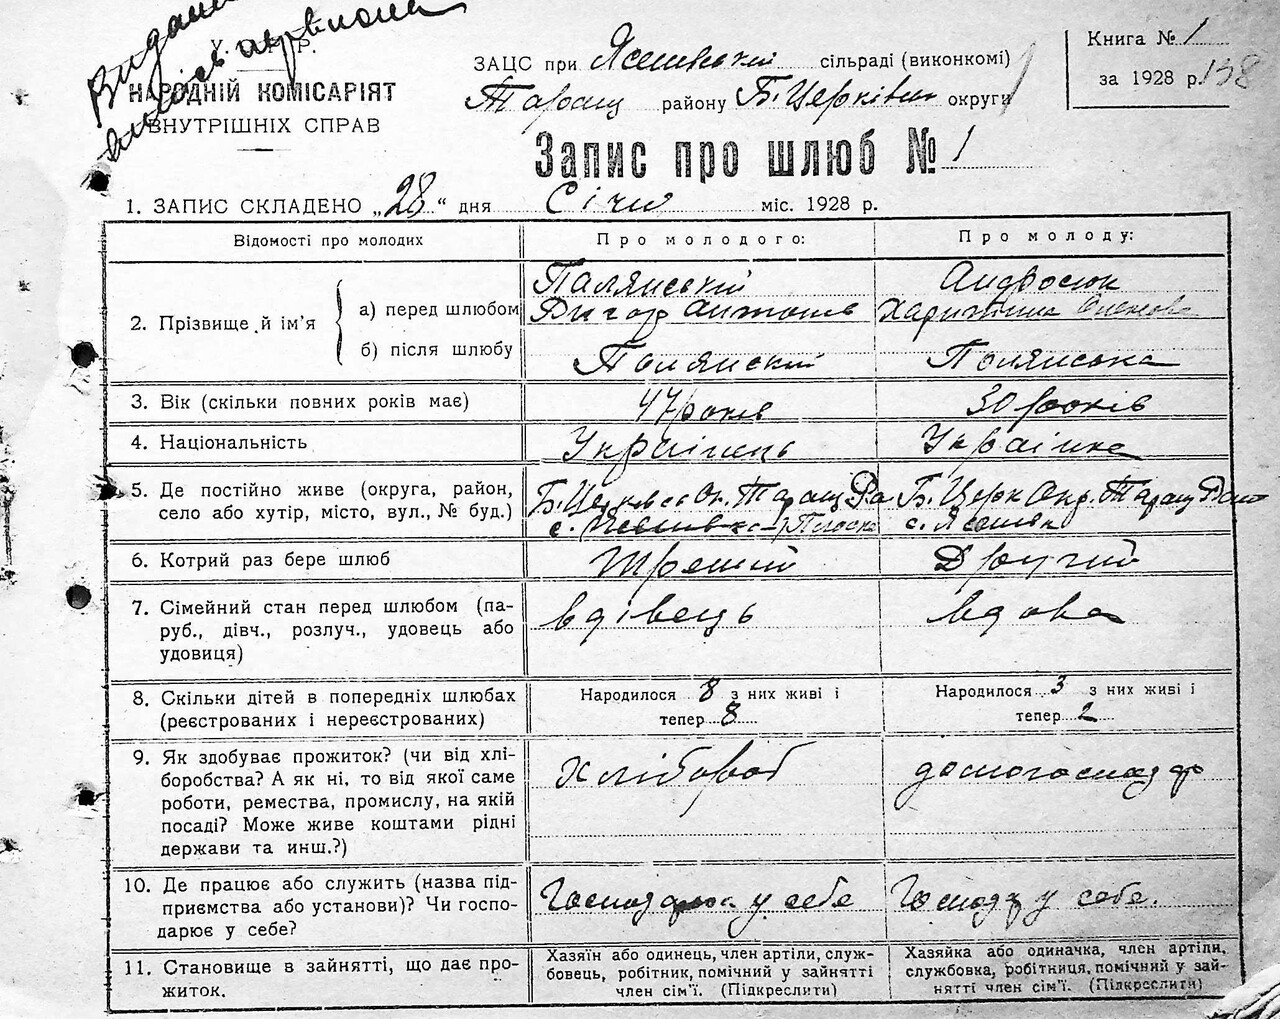 Видано
виписъ
У. Р.
НАРОДНІЙ КОМІСАРІЯТ
ВНУТРІШНІХ СПРАВ
ЗАЦС при Ясинівській сільраді (виконкомі)
Таращ району Б. Церківськ округи
Книга № 1
за 1928 р. 138
Запис про шлюб № 1
1. ЗАПИС СКЛАДЕНО „28“ дня Січня міс. 1928 р.
Відомості про молодих Про молодого: Про молоду:
2. Прізвище й ім'я
а) перед шлюбом
Палянський Андросюк
Григор Антонів
б) після шлюбу Полянский Полянська
3. Вік (скільки повних років має) 47 років 30 років
4. Національність Українець Українка
5. Де постійно живе (округа, район, Б. Церківс Ок. Таращ. Ра Б. Церк Окр. Таращ Район
село або хутір, місто, вул., № буд.) с. с. Ясинівка
6. Котрий раз бере шлюб Третий Другий
7. Сімейний стан перед шлюбом (па- вдівець вдова
руб., дівч., розлуч., удовець або
удовиця)
8. Скільки дітей в попередніх шлюбах Народилося 8 з них живі і Народилося 3 з них живі і
(реєстрованих і нереєстрованих) тепер 8 тепер 2
9. Як здобуває прожиток? (чи від хлі- Хлібороб домогосподар
боробства? А як ні, то від якої саме
роботи, ремества, промислу, на якій
посаді? Може живе коштами рідні
держави та инш.?)
10. Де працює або служить (назва під- Господарює у себе Господ у себе.
приємства або установи)? Чи госпо-
дарює у себе?
11. Становище в зайнятті, що дає про-
житок.
Хазяїн або одинець, член артіли, служ-
бовець, робітник, помічний у зайнятті
член сім'ї. (Підкреслити)
Хазяйка або одиначка, член артіли,
службовка, робітниця, помічний у зай-
нятті член сім'ї. (Підкреслити)